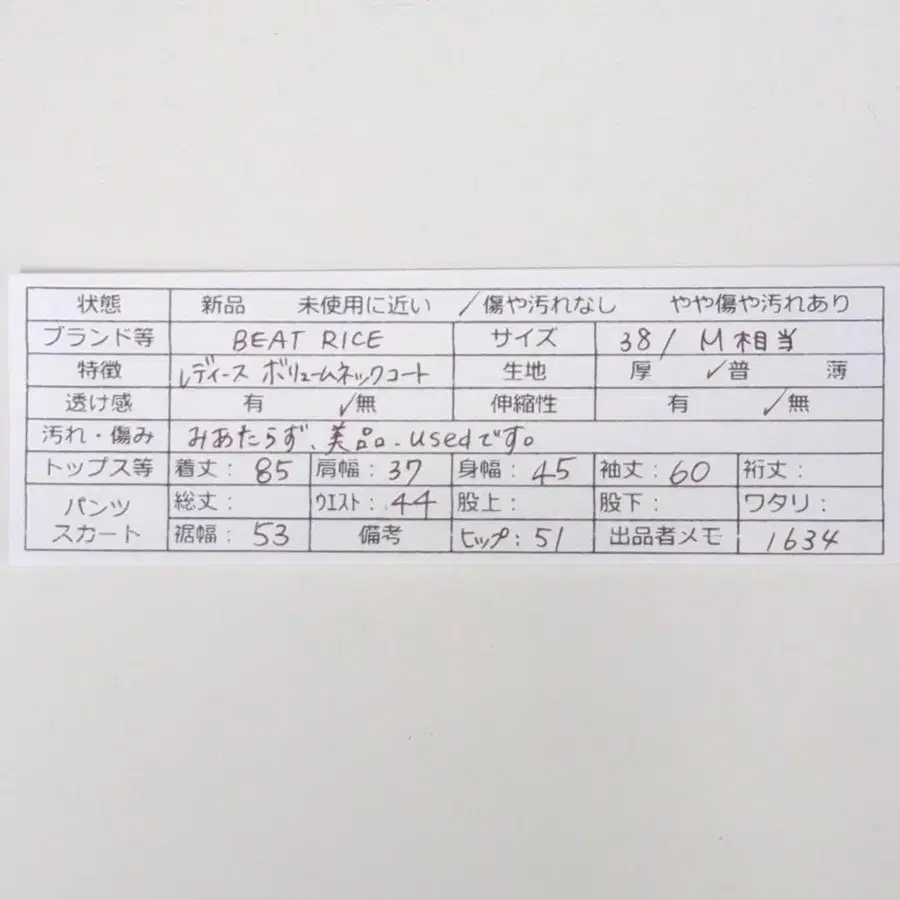 状態 新品 未使用に近い ✓傷や汚れなし やや傷や汚れあり
ブランド等 BEAT RICE サイズ 38/ M相当
特徴 レディース ボリュームネックコート 生地 厚 ✓普 薄
透け感 有 ✓無 伸縮性 有 ✓無
汚れ・傷み みあたらず、美品。usedです。
トップス等 着丈: 85 肩幅: 37 身幅: 45 袖丈: 60 裄丈:
パンツ 総丈: ウエスト: 44 股上: 股下: ワタリ:
スカート 裾幅: 53 備考 ヒップ: 51 出品者メモ 1634